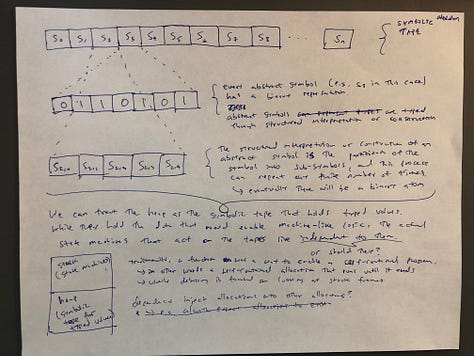 S0 S1 S2 S3 S4 S5 S6 S7 S8 ... Sn
SYMBOLIC
TAPE
0 1 1 0 1 0 1
every abstract symbol (e.g., S3 in this case)
has a binary representation
abstract symbols are typed
through structured interpretation or construction
The structural interpretation or construction of an
abstract symbol is the partitions of the
symbol into sub-symbols, and this process
can repeat any finite number of times.
↳ eventually there will be a binary atom
We can treat the heap as the symbolic tape that holds typed values.
While they hold the data that would enable machine-like logic, the actual
state machines that act on the tapes live independent to them.
or should they?
stack
(state machines)
traditionally, a function was a way to enable a self-contained program.
↳ in other words a self-contained allocation that runs until it ends
↳ while debugging is focused on looking at stack frames
heap
(symbolic
tape for
typed values)
dependency inject allocations into other allocations?